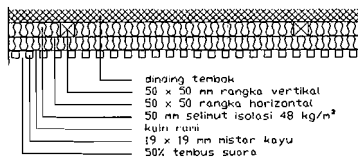 dinding tembok
50 x 50 mm rangka vertikal
50 x 50 rangka horizontal
50 mm selimut isolasi 48 kg/m²
kain rami
19 x 19 mm mistar kayu
50% tembus suara